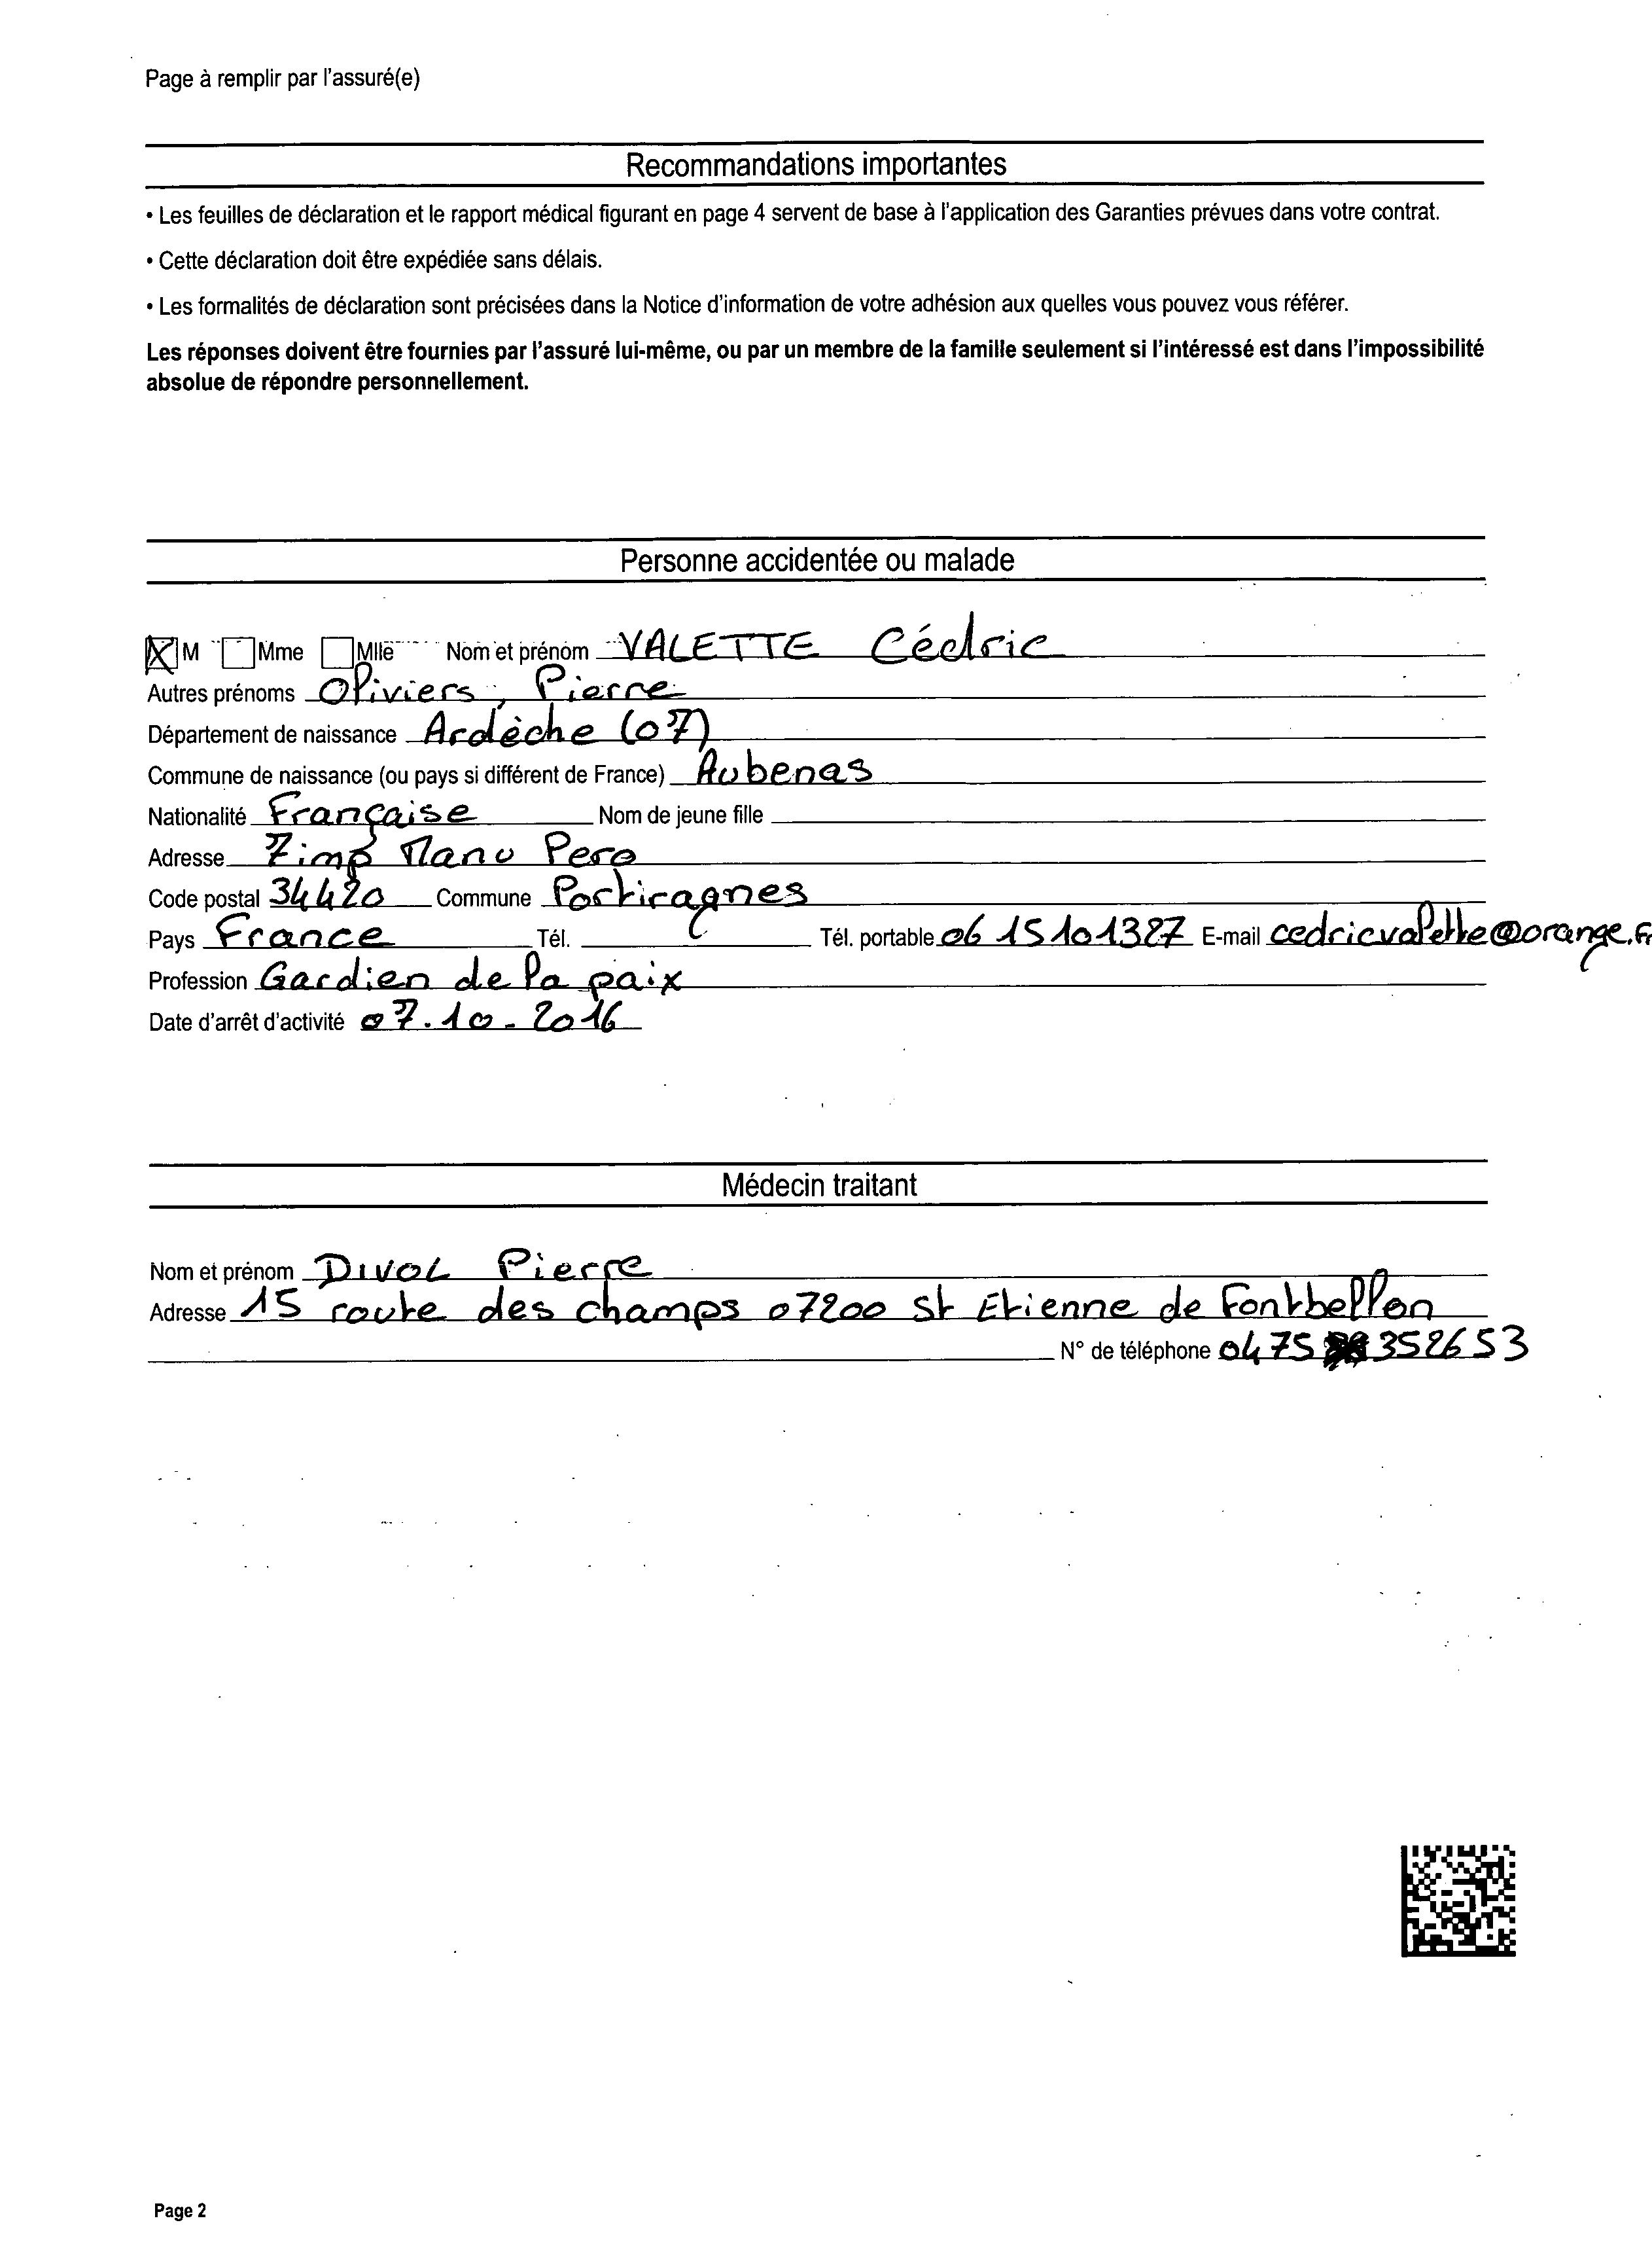 Page à remplir par l'assuré(e)
Recommandations importantes
• Les feuilles de déclaration et le rapport médical figurant en page 4 servent de base à l'application des Garanties prévues dans votre contrat.
• Cette déclaration doit être expédiée sans délais.
• Les formalités de déclaration sont précisées dans la Notice d'information de votre adhésion aux quelles vous pouvez vous référer.
Les réponses doivent être fournies par l'assuré lui-même, ou par un membre de la famille seulement si l'intéressé est dans l'impossibilité
absolue de répondre personnellement.
Personne accidentée ou malade
M Mme Mlle Nom et prénom VALETTE Cédric
Autres prénoms Oliviers, Pierre
Département de naissance Ardèche (07)
Commune de naissance (ou pays si différent de France) Aubenas
Nationalité Française Nom de jeune fille
Adresse 7 imp Manu Pero
Code postal 34420 Commune Portiragnes
Pays France Tél. Tél. portable 06 15101387 E-mail cedricvalette@orange.fr
Profession Gardien de la paix
Date d'arrêt d'activité 07.10-2016
Médecin traitant
Nom et prénom DIVOL Pierre
Adresse 15 route des champs 07200 St Etienne de Fontbellon
N° de téléphone 0475 352653
Page 2